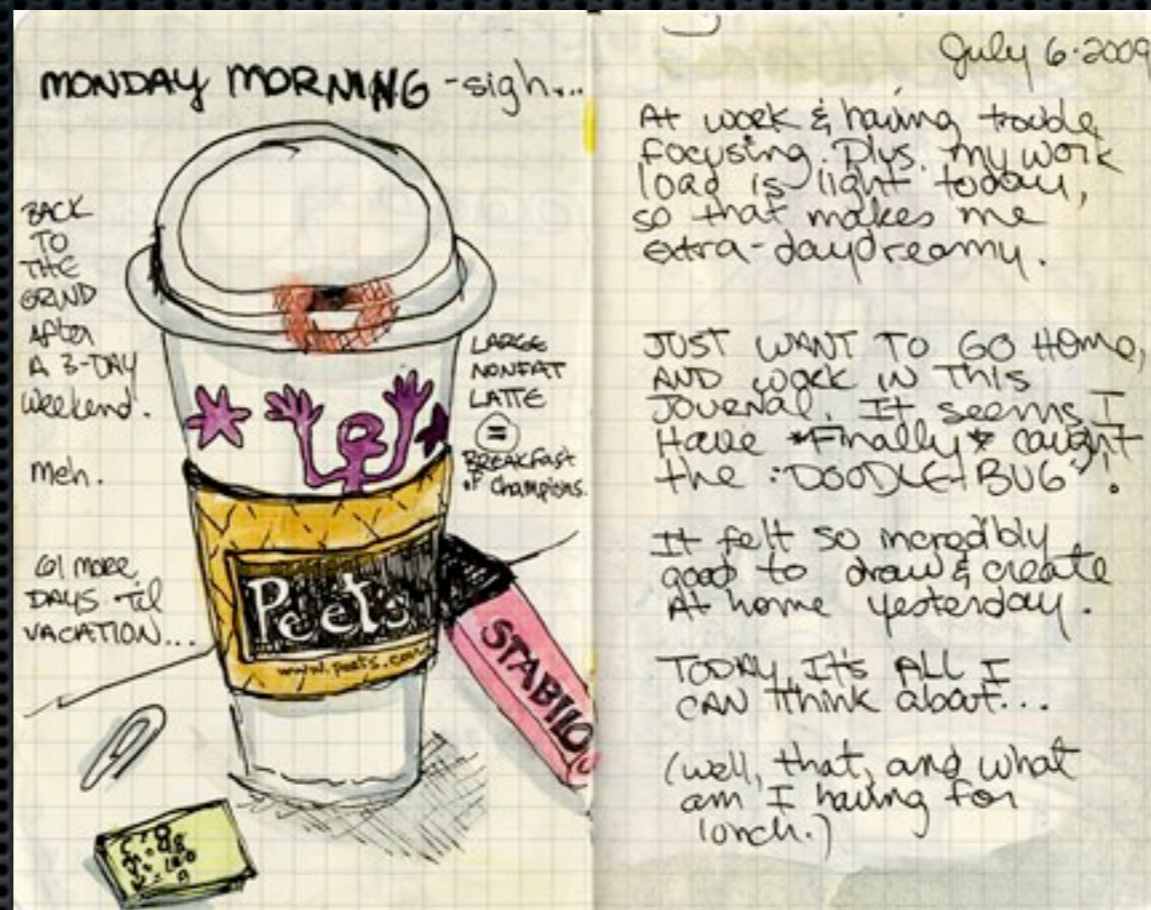 MONDAY MORNING -sigh...
BACK
TO
THE
GRIND
After
A 3-DAY
Weekend.
meh.
61 more
DAYS Til
VACATION...
LARGE
NONFAT
LATTE
=
BREAKfast
of Champions.
Peet's
www.peets.com
STABILO
July 6·2009
At work & having trouble
focusing. Plus, my work
load is light today,
so that makes me
extra-daydreamy.
JUST WANT TO GO Home,
AND work IN This
JOURNAL. It seems I
Have *Finally* caught
the "DOODLE-BUG"!
It felt so incredibly
good to draw & create
At home yesterday.
TODAY, It's ALL I
CAN think about...
(well, that, and what
am I having for
lunch.)